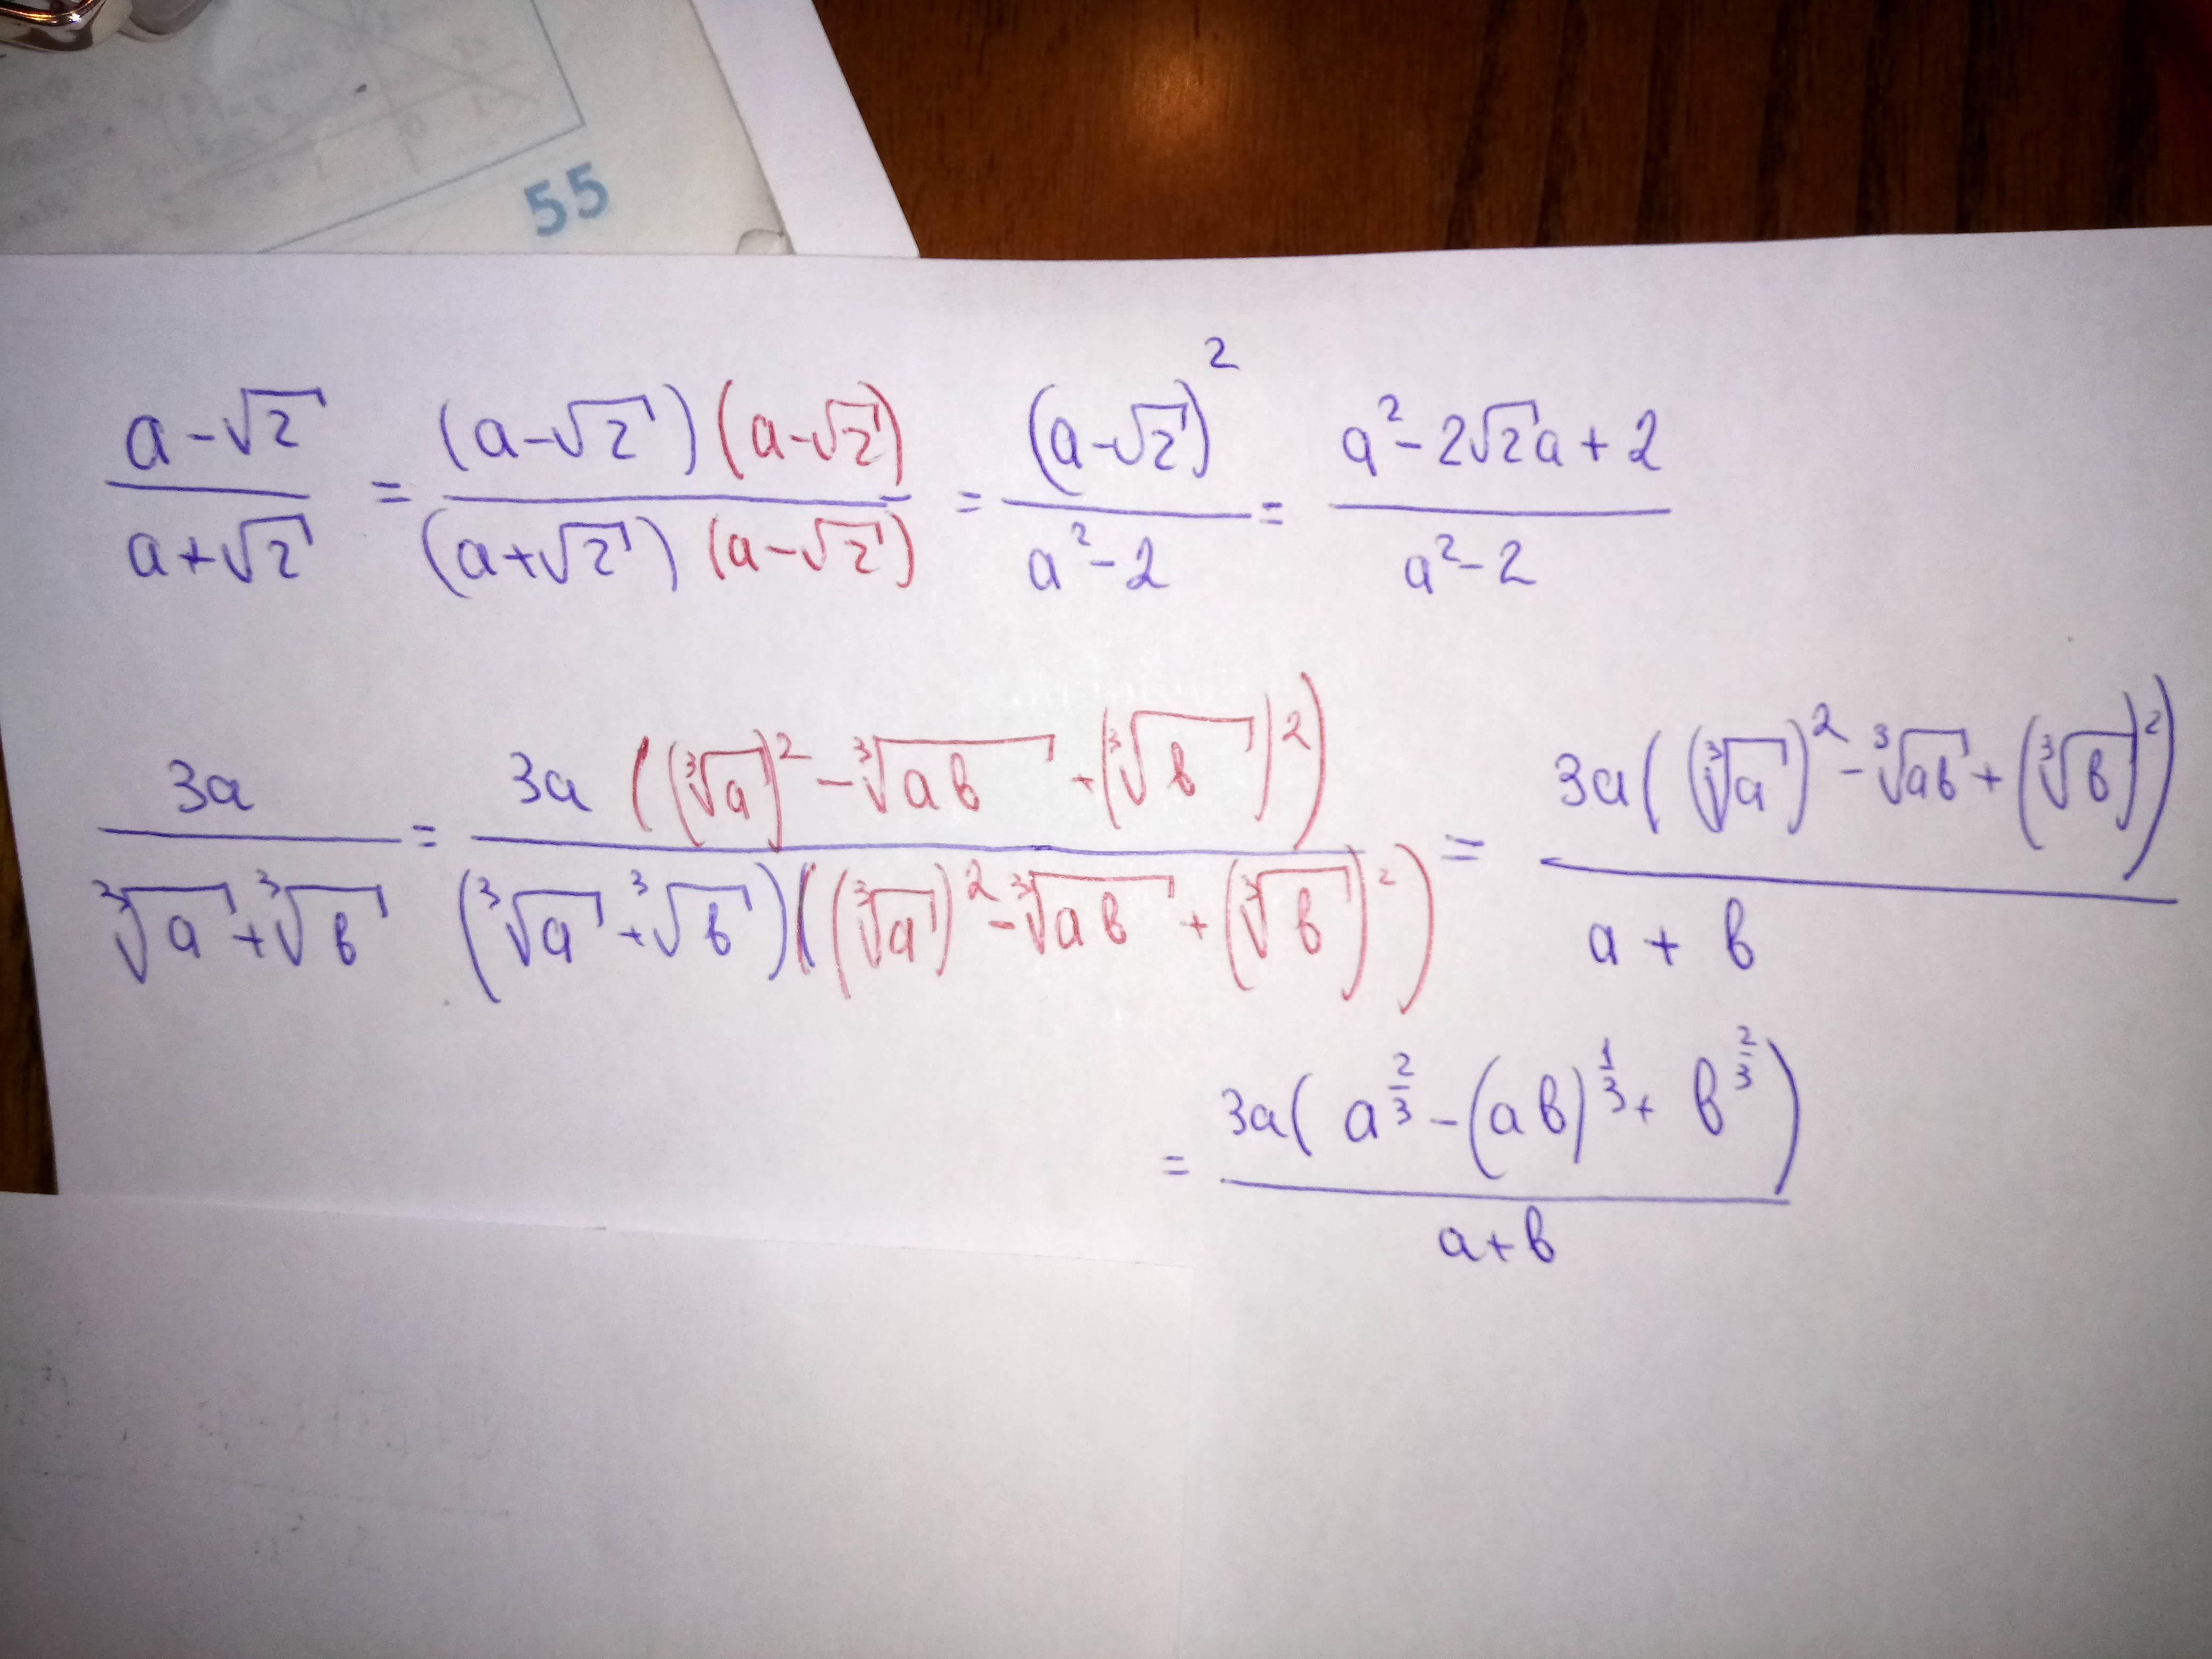 55
\frac{a-\sqrt{2}}{a+\sqrt{2}} = \frac{(a-\sqrt{2})(a-\sqrt{2})}{(a+\sqrt{2})(a-\sqrt{2})} = \frac{(a-\sqrt{2})^2}{a^2-2} = \frac{a^2-2\sqrt{2}a+2}{a^2-2}
\frac{3a}{\sqrt[3]{a}+\sqrt[3]{b}} = \frac{3a((\sqrt[3]{a})^2-\sqrt[3]{ab}+(\sqrt[3]{b})^2)}{(\sqrt[3]{a}+\sqrt[3]{b})((\sqrt[3]{a})^2-\sqrt[3]{ab}+(\sqrt[3]{b})^2)} = \frac{3a((\sqrt[3]{a})^2-\sqrt[3]{ab}+(\sqrt[3]{b})^2)}{a+b}
= \frac{3a(a^{\frac{2}{3}}-(ab)^{\frac{1}{3}}+b^{\frac{2}{3}})}{a+b}